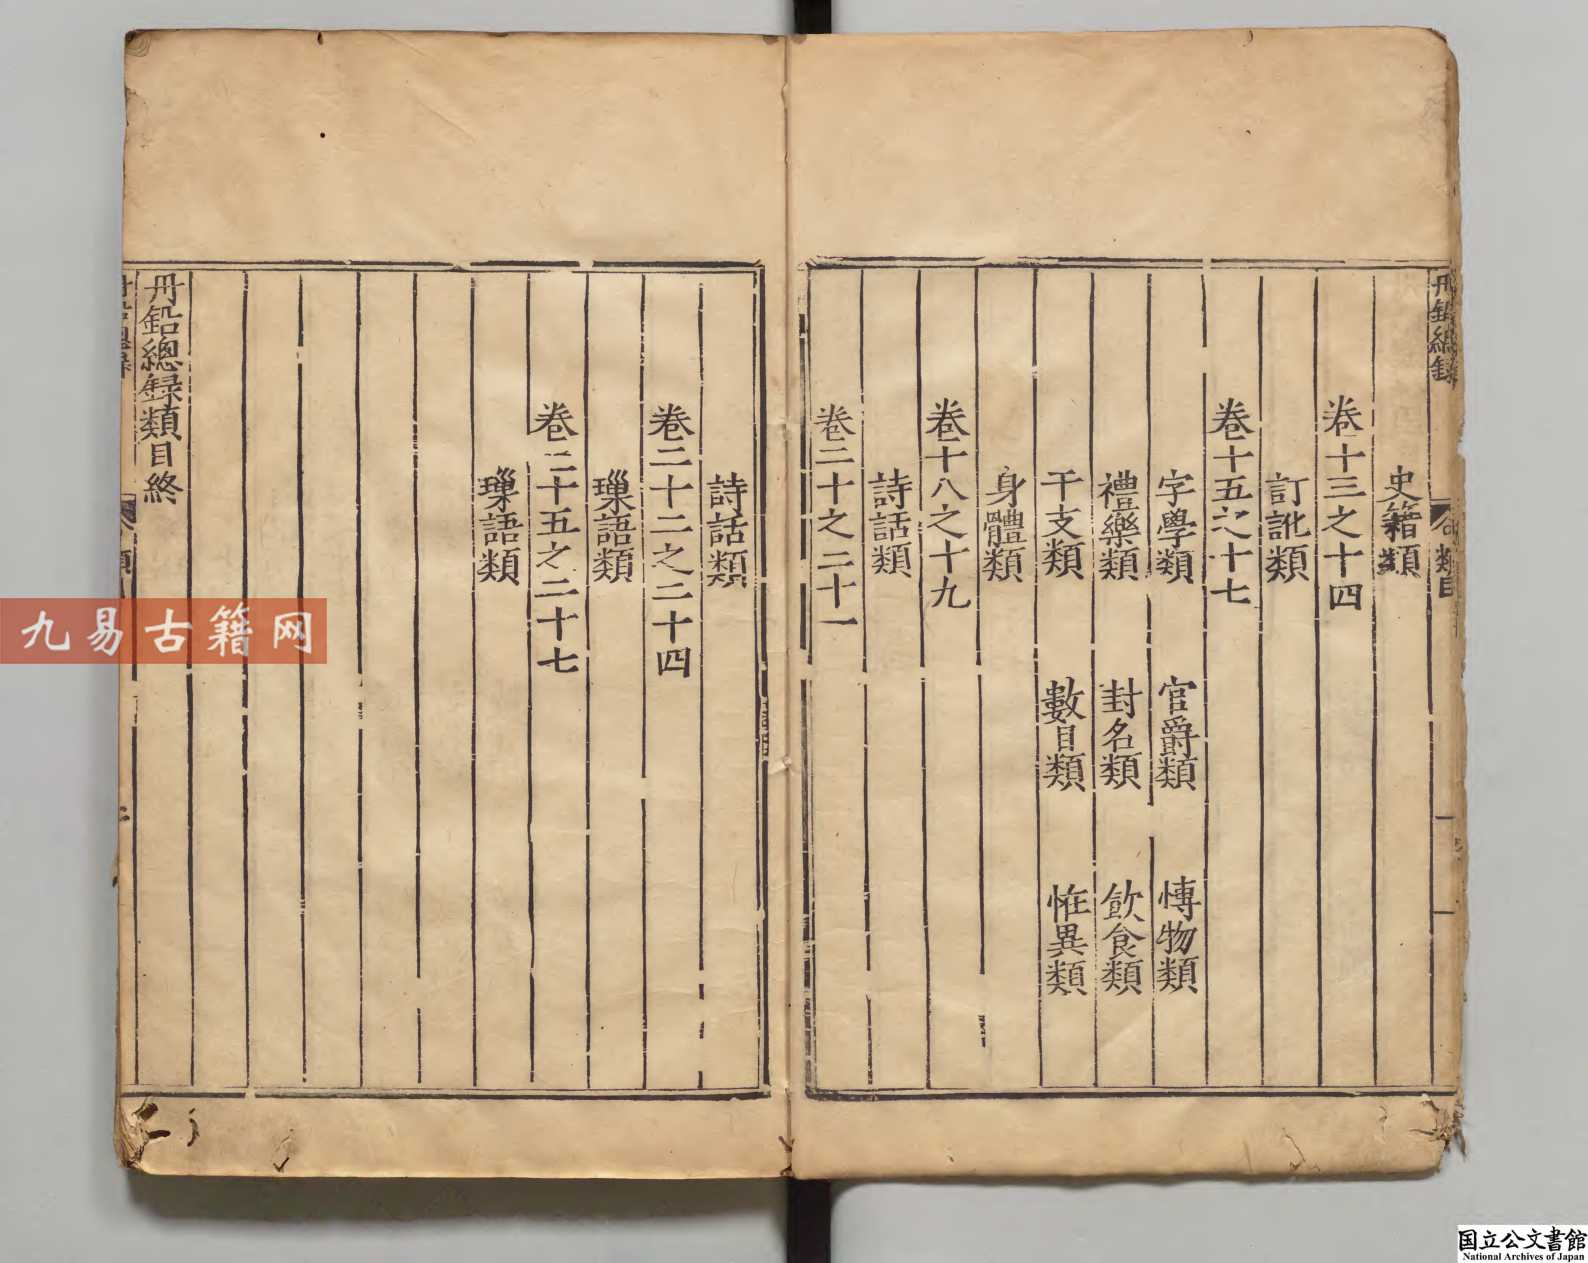 丹鉛總錄
類目
史籍類
卷十三之十四
訂訛類
卷十五之十七
字學類 官爵類 博物類
禮樂類 封名類 飲食類
干支類 數目類 恠異類
身體類
卷十八之十九
詩話類
卷二十之二十一
詩話類
卷二十二之二十四
璅語類
卷二十五之二十七
璅語類
丹鉛總録類目終
九易古籍网
国立公文書館
National Archives of Japan